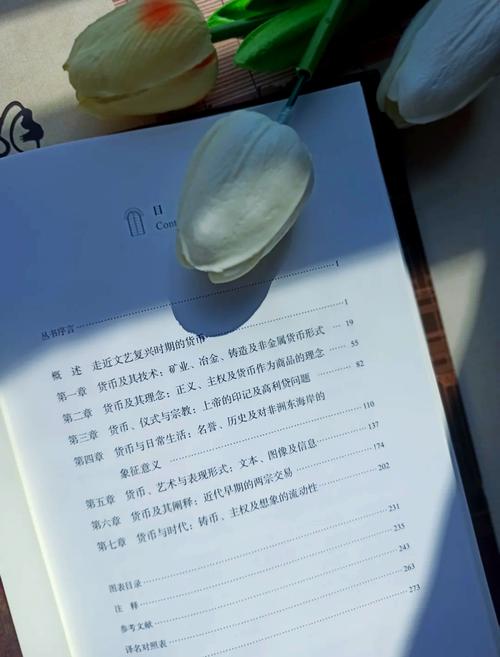 目
Cont
丛书序言 I
概 述 走近文艺复兴时期的货币 1
第一章 货币及其技术：矿业、冶金、铸造及非金属货币形式 19
第二章 货币及其理念：正义、主权及货币作为商品的理念 55
第三章 货币、仪式与宗教：上帝的印记及高利贷问题 82
第四章 货币与日常生活：名誉、历史及对非洲东海岸的
象征意义 110
第五章 货币、艺术与表现形式：文本、图像及信息 137
第六章 货币及其阐释：近代早期的两宗交易 174
第七章 货币与时代：铸币、主权及想象的流动性 202
图表目录 231
注 释 235
参考文献 243
译名对照表 263
273